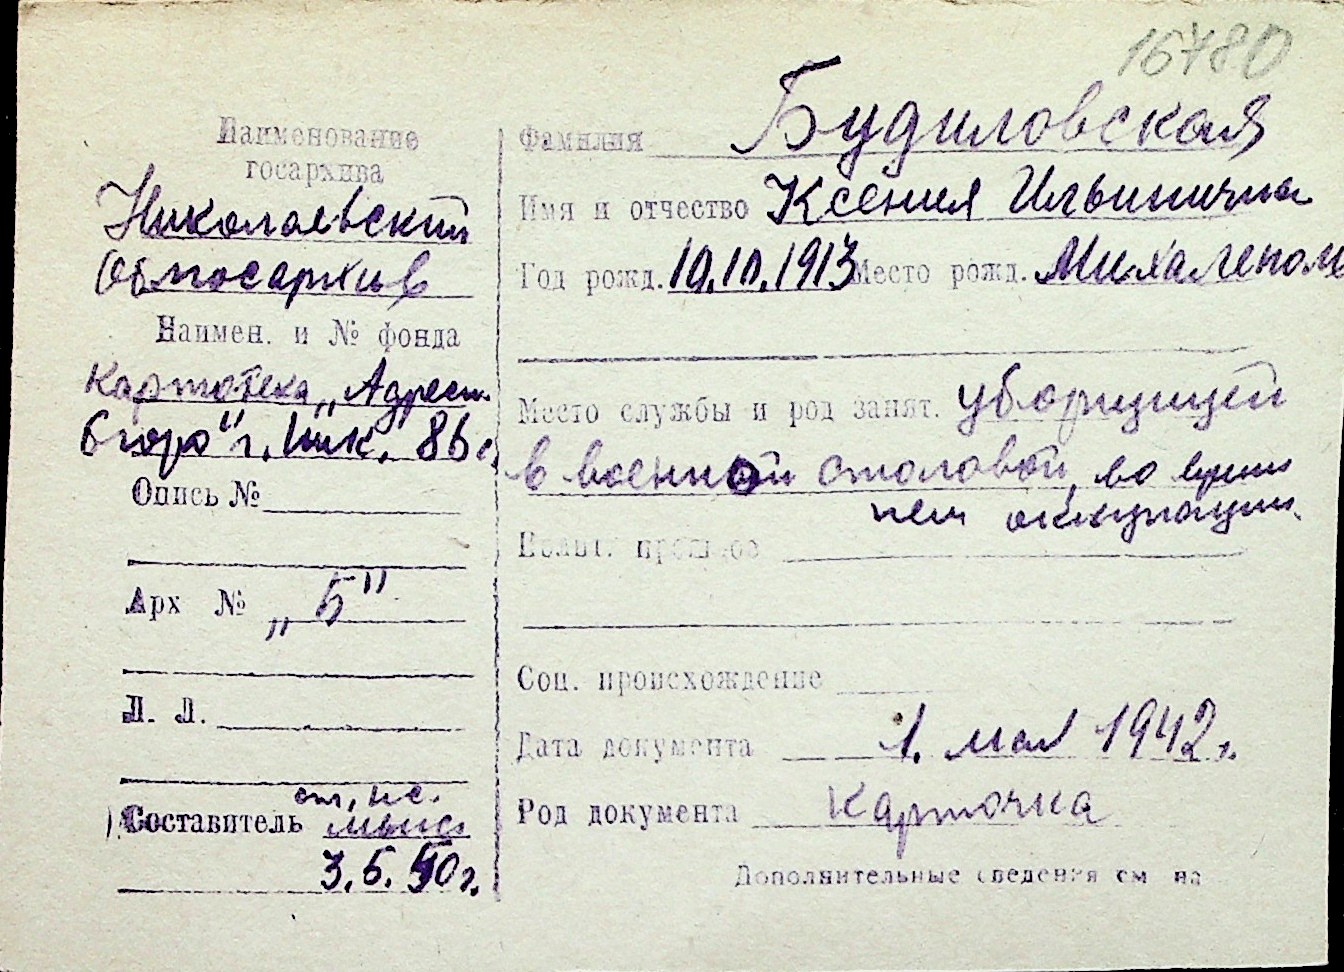 16780
Наименование
госархива
Николаевский
Облгосархив
Наимен. и № фонда
Картотека „Адресн.
бюро" г. Ник. 86 с
Опись №
Арх № „Б"
Л. Л.
ст. н.с.
Составитель
3.5.50г.
Фамилия Будиловская
Имя и отчество Ксения Ильинична
Год рожд. 10.10.1913 Место рожд.
Место службы и род занят. уборщицей
в военной столовой, во время
нем оккупации.
Полит. прошлое
Соц. происхождение
Дата документа 1. мая 1942г.
Род документа Карточка
Дополнительные сведения см на